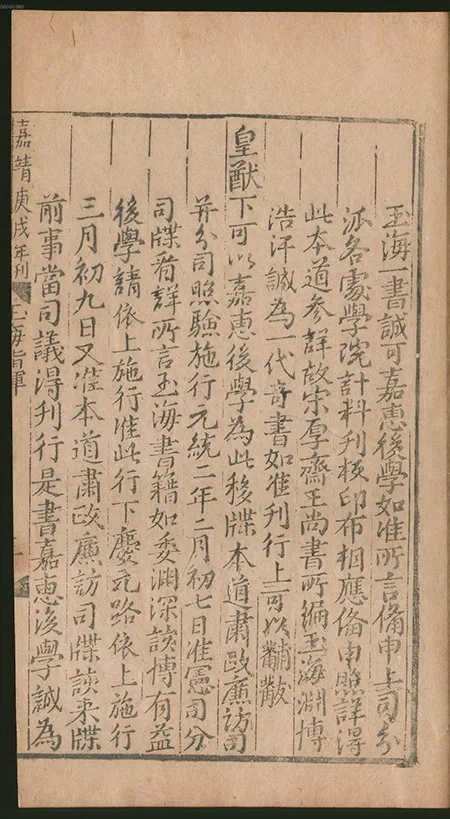 玉海一書誠可嘉惠後學如准所言備申上司分
派各處學院計料刋板印布相應俻申照詳得
此本道参詳故宋厚齋王尚書所編玉海淵博
浩汗誠為一代竒書如准刋行上可以黼黻
皇猷下可以嘉惠後學為此移牒本道肅政廉訪司
并分司照驗施行元統二年二月初七日准憲司分
司牒看詳所言玉海書籍如委淵深該博有益
後學請依上施行准此行下慶元路依上施行
三月初九日又准本道肅政廉訪司牒該来牒
前事當司議得刋行是書嘉惠後學誠為
嘉靖庚戌年刊 玉海指揮